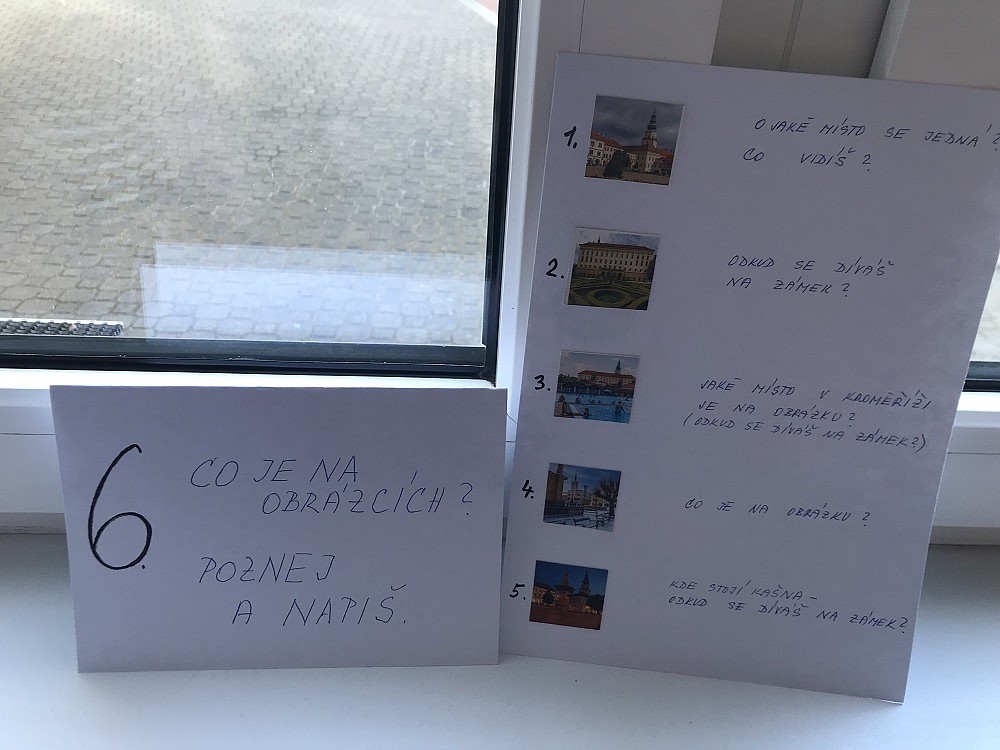 6.
CO JE NA
OBRÁZCÍCH?
POZNEJ
A NAPIŠ.
1.
O JAKÉ MÍSTO SE JEDNÁ?
CO VIDÍŠ?
2.
ODKUD SE DÍVÁŠ
NA ZÁMEK?
3.
JAKÉ MÍSTO V KROMĚŘÍŽI
JE NA OBRÁZKU?
(ODKUD SE DÍVÁŠ NA ZÁMEK?)
4.
CO JE NA OBRÁZKU?
5.
KDE STOJÍ KAŠNA -
ODKUD SE DÍVÁŠ NA ZÁMEK?